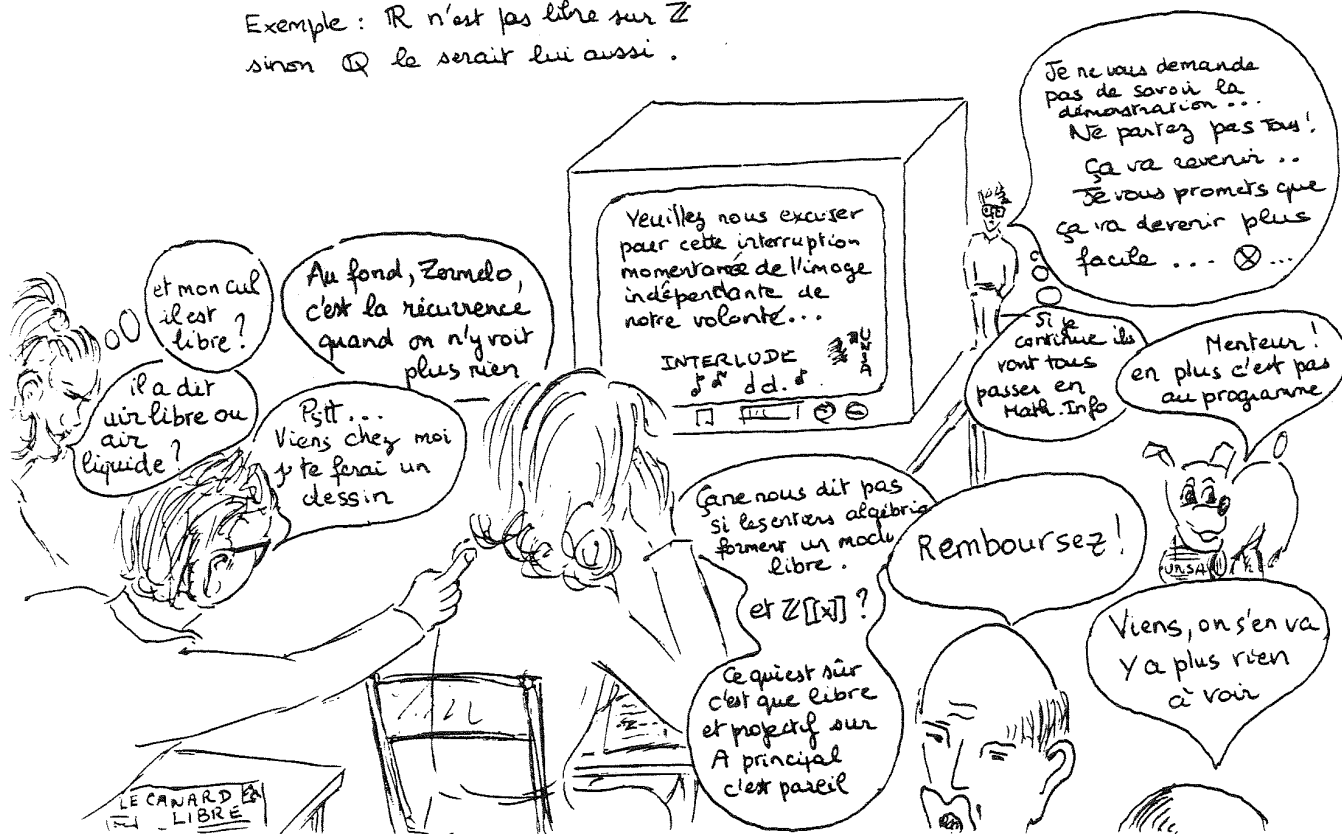 Exemple : ℝ n'est pas libre sur ℤ
sinon ℚ le serait lui aussi .
Je ne vous demande
pas de savoir la
démonstration ...
Ne partez pas tous !
ça va revenir ..
Je vous promets que
ça va devenir plus
facile ... ⊗ ...
Veuillez nous excuser
pour cette interruption
momentanée de l'image
indépendante de
notre volonté...
INTERLUDE
et mon cul
il est
libre ?
Au fond, Zermelo,
c'est la récurrence
quand on n'y voit
plus rien
il a dit
air libre ou
air
liquide ?
Pstt ...
Viens chez moi
je te ferai un
dessin
Si je
continue ils
vont tous
passer en
Math.Info
Menteur !
en plus c'est pas
au programme
Ça ne nous dit pas
si les entiers algébriq
forment un modu
libre .
et ℤ[[x]] ?
Ce qui est sûr
c'est que libre
et projectif sur
A principal
c'est pareil
Remboursez !
Viens, on s'en va
Y a plus rien
à voir
LE CANARD
LIBRE